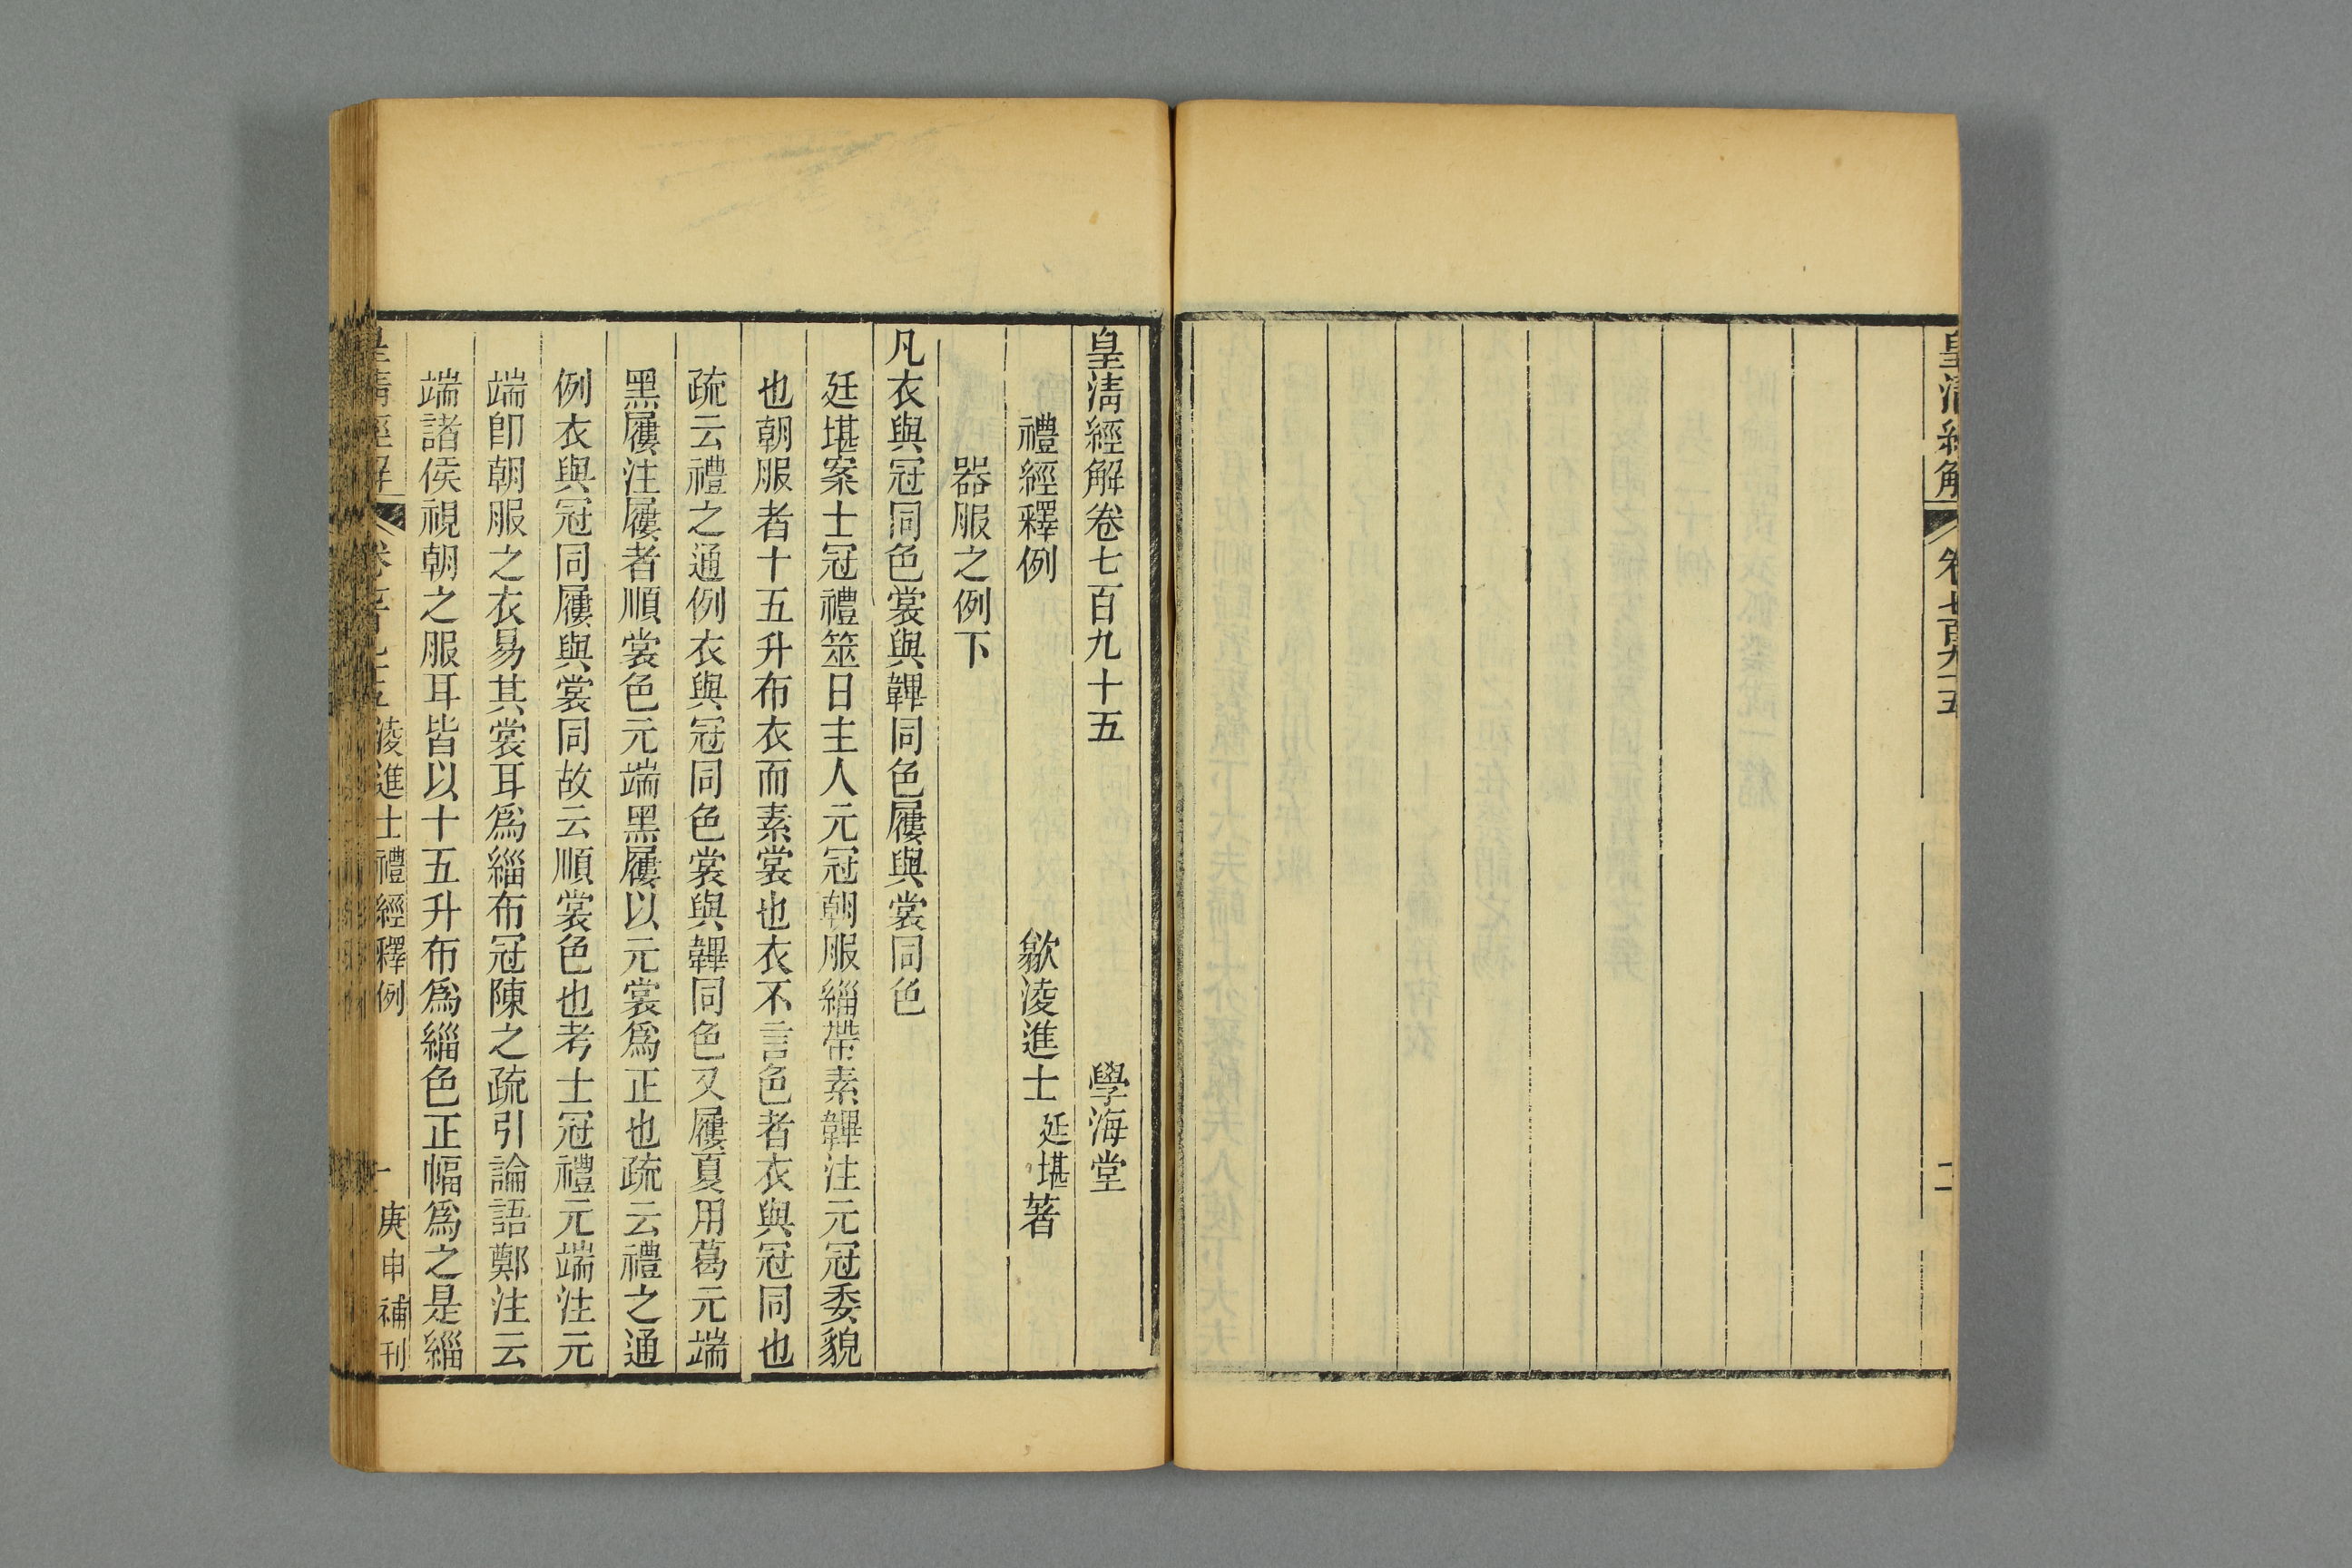 皇清經解
卷七百九十五
二
皇清經解卷七百九十五 學海堂
禮經釋例 歙淩進士廷堪著
器服之例下
凡衣與冠同色裳與韠同色屨與裳同色
廷堪案士冠禮筮日主人元冠朝服緇帶素韠注元冠委貌
也朝服者十五升布衣而素裳也衣不言色者衣與冠同也
疏云禮之通例衣與冠同色裳與韠同色又屨夏用葛元端
黑屨注屨者順裳色元端黑屨以元裳爲正也疏云禮之通
例衣與冠同屨與裳同故云順裳色也考士冠禮元端注元
端卽朝服之衣易其裳耳爲緇布冠陳之疏引論語鄭注云
端諸侯視朝之服耳皆以十五升布爲緇色正幅爲之是緇
皇清經解
淩進士禮經釋例
一
庚申補刊